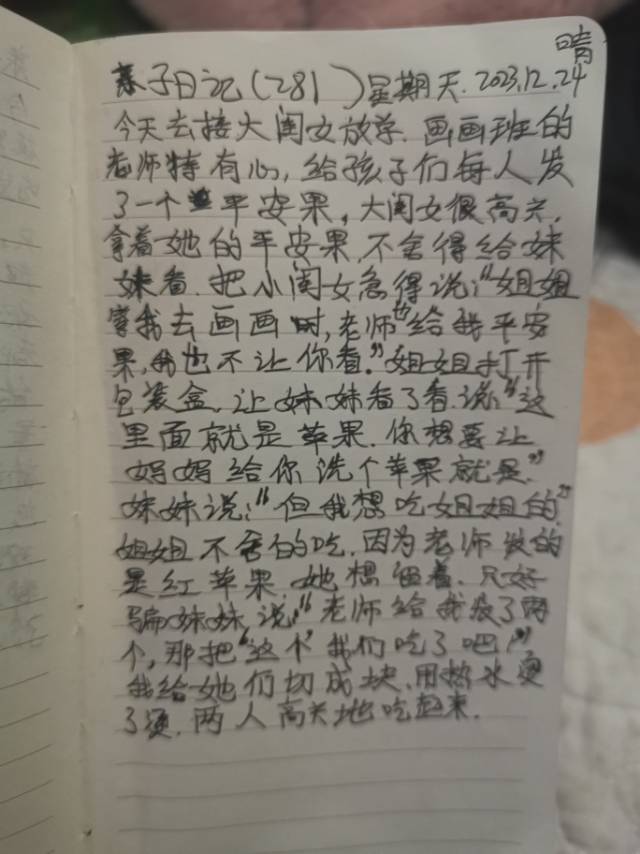 晴
亲子日记(281)星期天.2023.12.24
今天去接大闺女放学.画画班的
老师特有心,给孩子们每人发
了一个平安果,大闺女很高兴.
拿着她的平安果,不舍得给妹
妹看.把小闺女急得说:"姐姐
等我去画画时,老师也给我平安
果,我也不让你看."姐姐打开
包装盒.让妹妹看了看.说:"这
里面就是苹果.你想要让
妈妈给你洗个苹果就是."
妹妹说:"但我想吃姐姐的."
姐姐不舍的吃,因为老师发的
是红苹果.她想留着.只好
骗妹妹说:"老师给我发了两
个,那把"这个"我们吃了吧!"
我给她们切成块.用热水烫
了烫.两人高兴地吃起来.